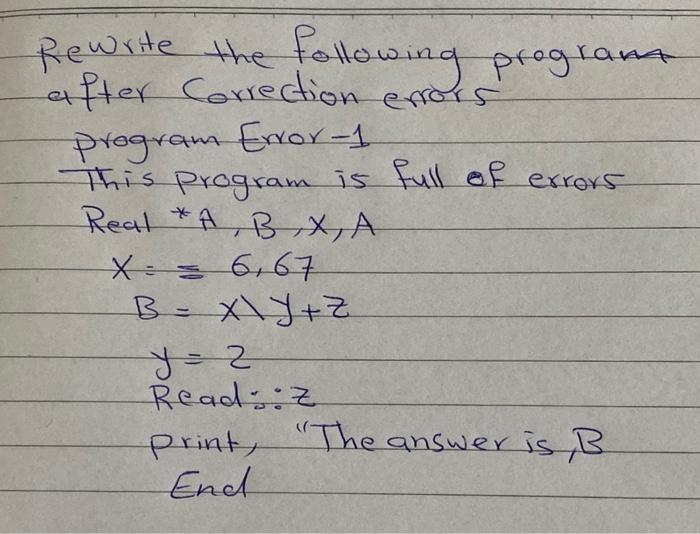 Rewrite the following program
after Correction errors
program Error-1
This program is full of errors
Real *A, B, X, A
X = = 6,67
B = X\y+z
y = 2
Read :: z
print, "The answer is, B
End